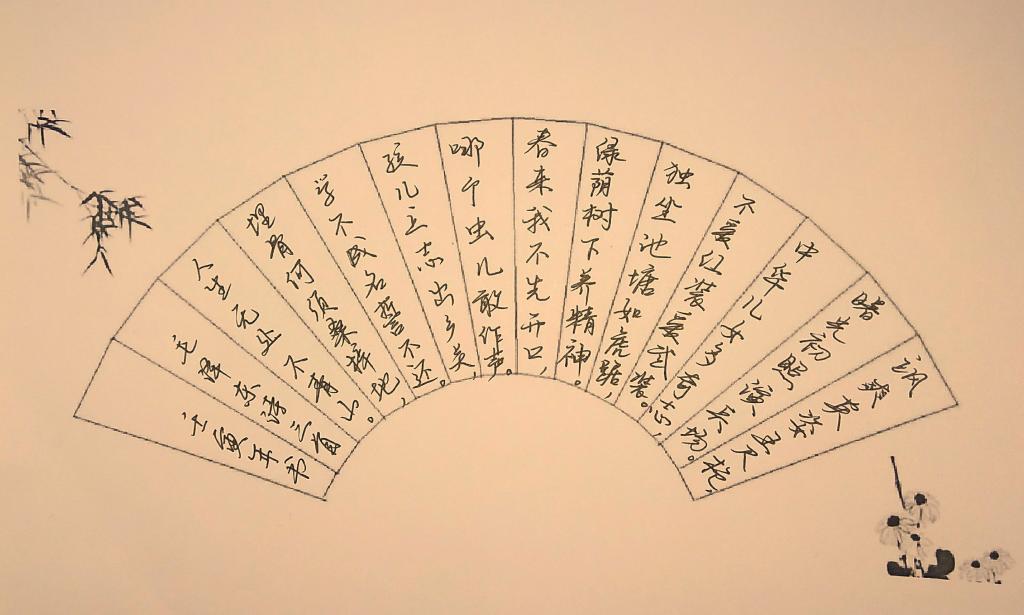 飒爽英姿五尺枪,
曙光初照演兵场。
中华儿女多奇志,
不爱红装爱武装。
独坐池塘如虎踞,
绿荫树下养精神。
春来我不先开口,
哪个虫儿敢作声。
孩儿立志出乡关,
学不成名誓不还。
埋骨何须桑梓地,
人生无处不青山。
毛泽东诗三首
壬寅年书